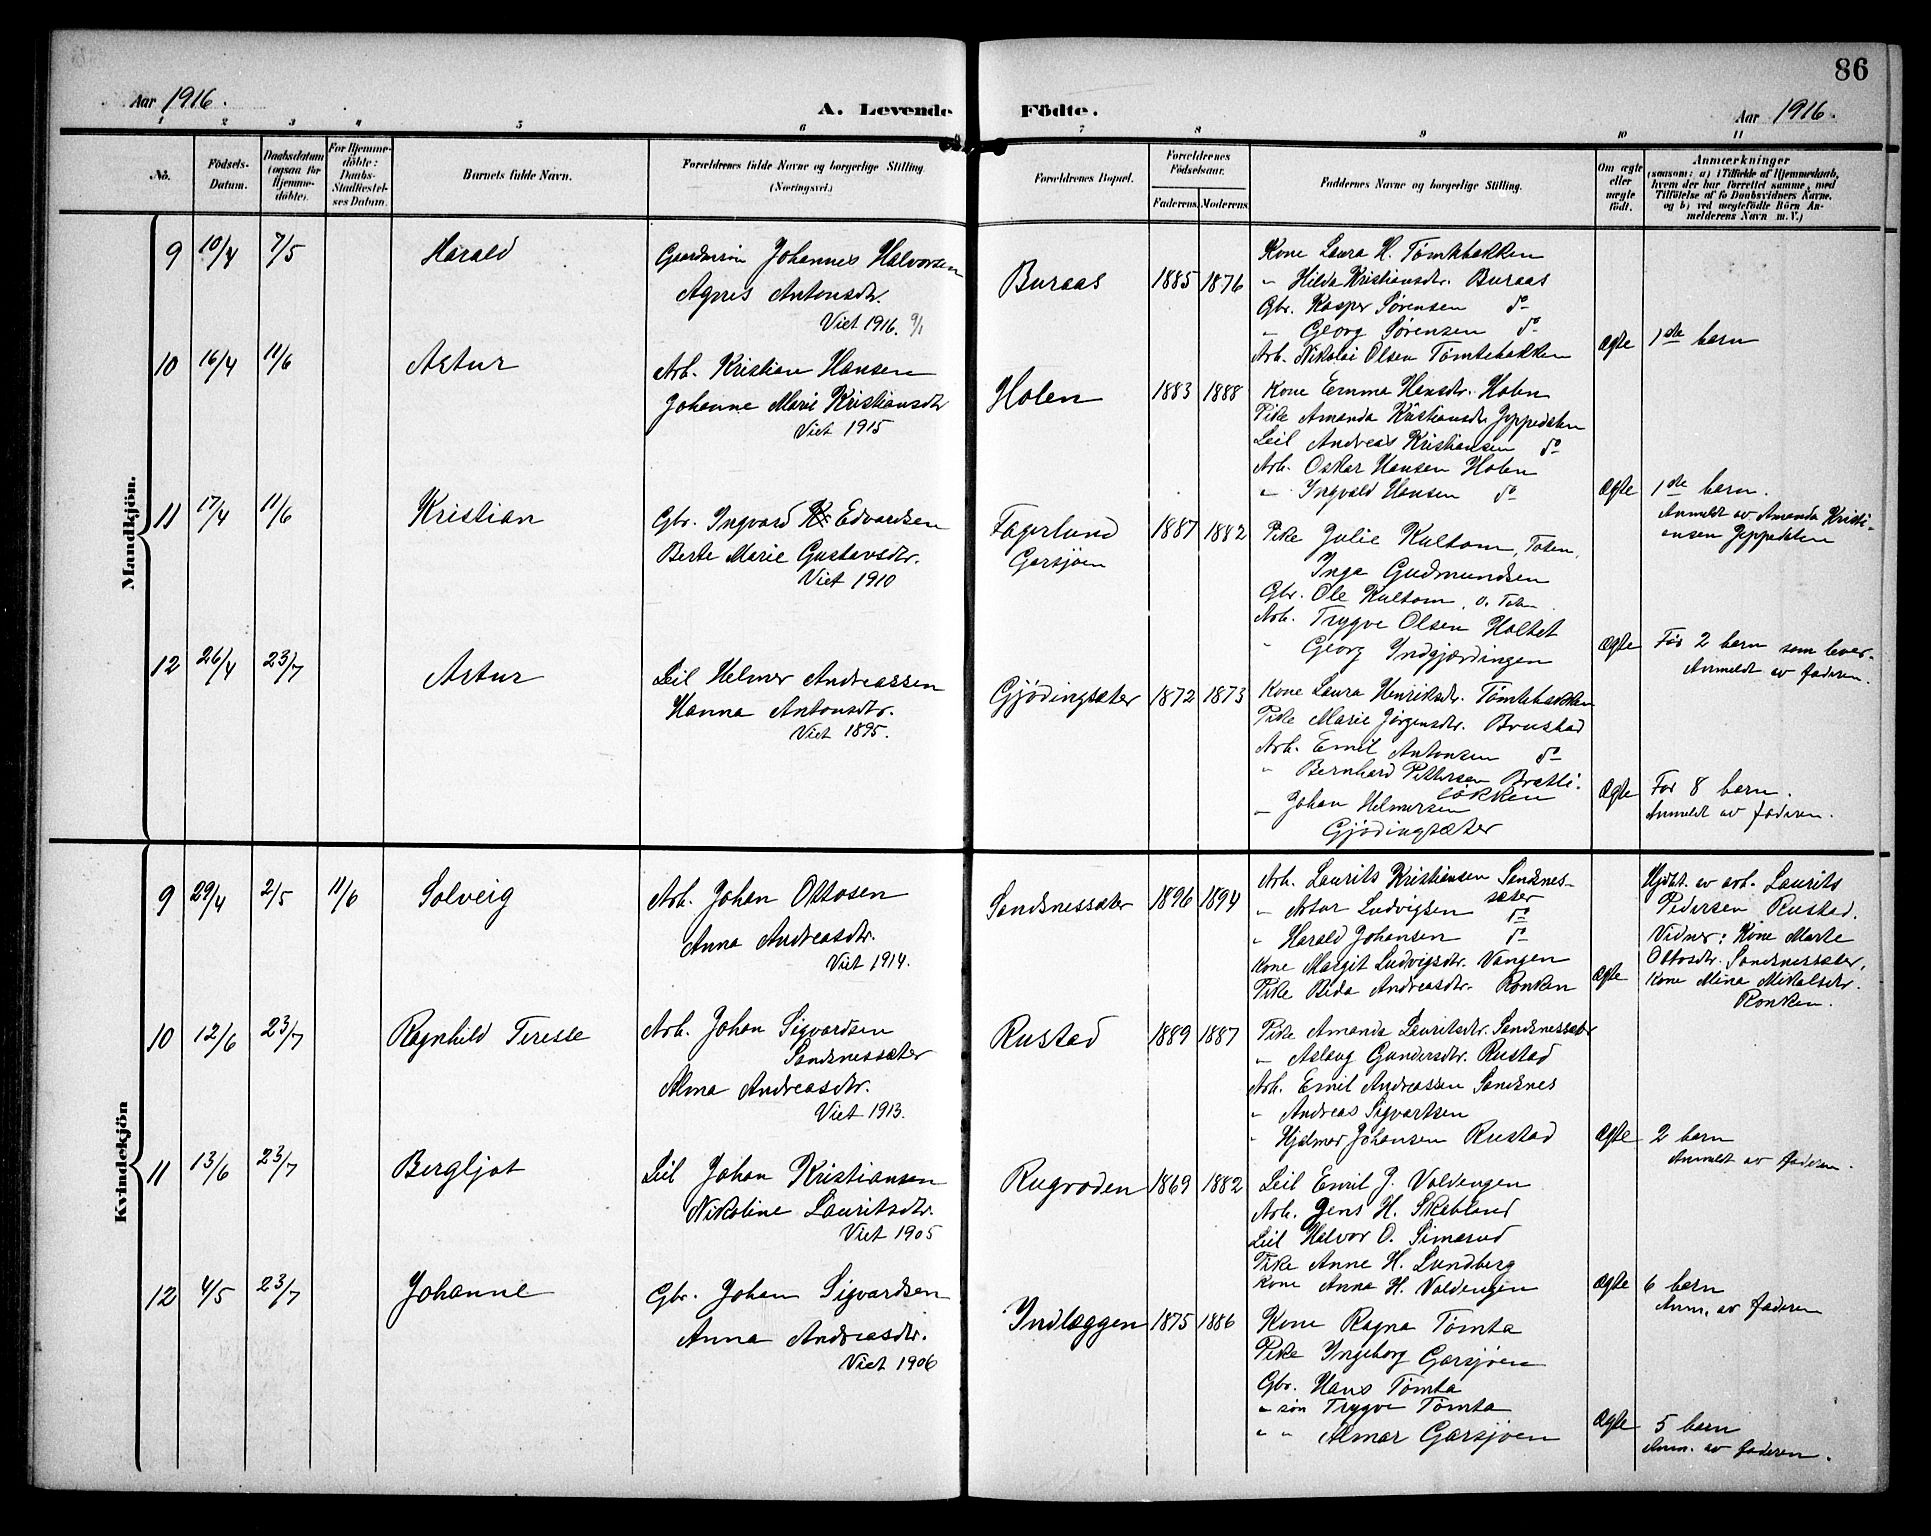 86
Aar 1916.
A. Levende Födte.
Aar 1916.
1 2 3 4 5 6 7 8 9 10 11
No.
Födsels-Datum.
Daabsdatum (ogsaa för Hjemme-döbte).
For Hjemme-döbte: Daabs-Stadfæstel-ses Datum.
Barnets fulde Navn.
Forældrenes fulde Navne og borgerlige Stilling (Næringsvei.)
Forældrenes Bopæl.
Forældrenes Födselsaar.
Faderens. Moderens.
Faddernes Navne og borgerlige Stilling.
Om ægte eller uægte födt.
Anmærkninger
(saasom: a) i Tilfælde af Hjemmedaab,
hvem der har forrettet samme, med
Tilföielse af to Daabsvidners Navne.
og b) ved uægtefödte Börn An-
melderens Navn m. V.)
Mandkjön.
9 10/4 7/5 Harald
Gaardmien Johannes Halvorsen
Agnes Antonsdtr.
Viet 1916. 9/1
Buraas 1885 1876
Kone Laura H. Tømtebakken
" Hilda Kristiansdtr. Buraas
Gbr. Kasper Sørensen do
" Georg Sørensen do
Arb. Nikolai Olsen Tømtebakken
Ægte 1ste barn
10 16/4 11/6 Artur
Arb. Kristian Hansen
Johanne Marie Kristiansdtr
Viet 1915
Holen 1883 1888
Kone Emma Hansdtr. Holen
Pike Amanda Kristiansdtr. Jeppedalen
Leil Andreas Kristiansen do
Arb. Oskar Hansen Holen
" Ingvald Hansen do
Ægte 1ste barn.
Anmeldt av Amanda Kristi-
ansen Jeppedalen
11 17/4 11/6 Kristian
Gbr. Ingvard Kr. Edvardsen
Berte Marie Gustavsdtr.
Viet 1910
Fagerlund
Garsjøen
1887 1882
Pike Julie Kultom, Toten,
Inga Gudmundsen
Gbr. Ole Kultom, v. Toten
Arb. Trygve Olsen Holtet
" Georg Indgjærdingen
Ægte Før 2 barn som lever.
Anmeldt av faderen.
12 26/4 23/7 Artur
Leil Helmer Andreassen
Hanna Antonsdtr.
Viet 1895.
Gjødingsæter 1872 1873
Kone Laura Henriksdtr. Tømtebakken
Pike Marie Jørgensdtr. Brustad
Arb. Emil Antonsen do
" Bernhard Pettersen Brætli-
løkken
" Johan Helmersen
Gjødingsæter
Ægte Før 8 barn.
Anmeldt av faderen.
Kvindekjön
9 29/4 2/5 11/6 Solveig
Arb. Johan Ottosen
Anna Andreasdtr.
Viet 1914.
Sandsnessæter 1896 1894
Arb. Laurits Kristiansen Sandsnes-
sæter
" Artur Ludvigsen do
" Harald Johansen do
Kone Margit Ludvigsdtr. Vangen
Pike Beda Andreasdtr. Ronken
Ægte
Hjdbt. av arb. Laurits
Pedersen Rustad.
Vidner: Kone Marte
Ottosdtr. Sandsnessæter,
Kone Mina Mikalsdtr.
Ronken.
10 12/6 23/7 Ragnhild Terese
Arb. Johan Sigvardsen
Sandsnessæter
Alma Andreasdtr.
Viet 1913.
Rustad 1889 1887
Pike Amanda Lauritsdtr. Sandsnessæter
" Aslaug Gundersdtr. Rustad
Arb. Emil Andreassen Sandsnes
" Andreas Sigvartsen
" Hjalmar Johansen Rustad
Ægte 2 barn
Anmeldt av faderen.
11 13/6 23/7 Bergljot
Leil Johan Kristiansen
Nikoline Lauritsdtr.
Viet 1905
Rugroden 1869 1882
Leil Emil J. Valdengen
Arb. Jens H. Skabland
Leil Halvor O. Simarud
Pike Anne H. Lundberg
Kone Anna H. Valdengen
Ægte 6 barn
Anm. av faderen
12 4/5 23/7 Johanne
Gbr. Johan Sigvardsen
Anna Andreasdtr.
Viet 1906
Indlæggen 1875 1886
Kone Ragna Tømta
Pike Ingeborg Garsjøen
Gbr. Hans Tømta
" søn Trygve Tømta
" " Almar Garsjøen
Ægte 5 barn
Anm. av faderen.